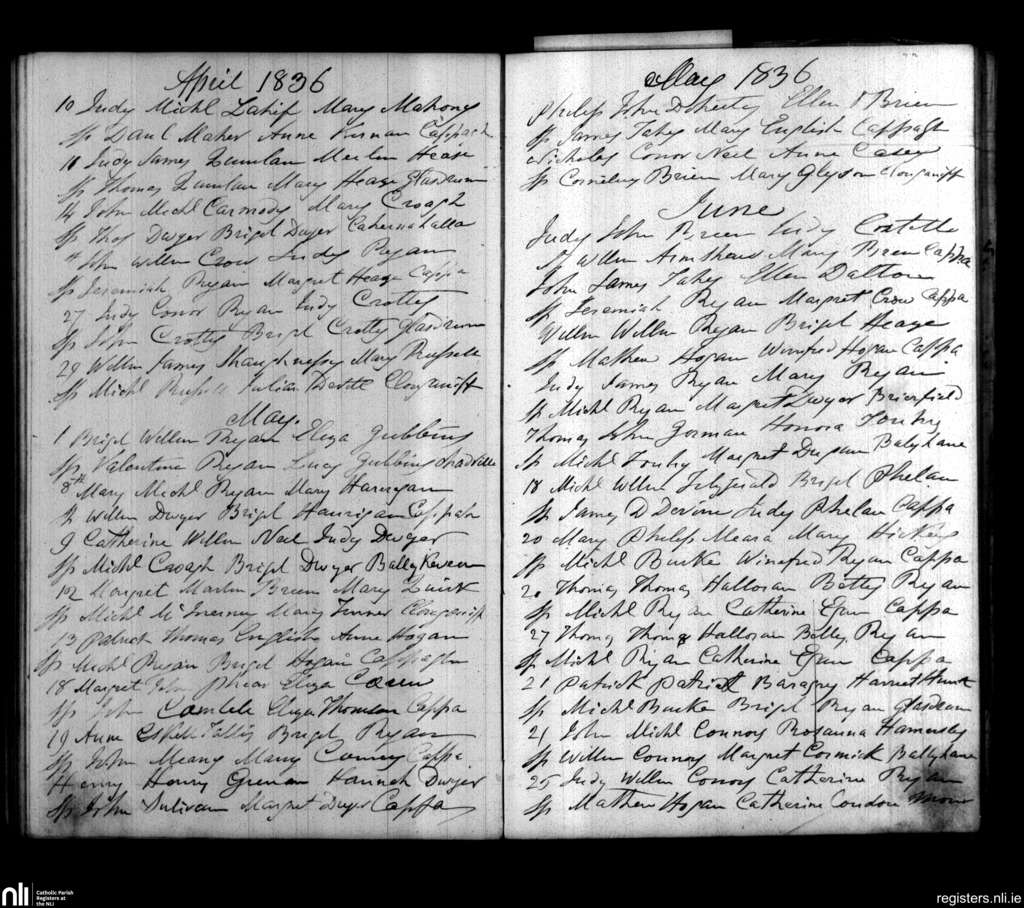 April 1836
10 Judy Michl Lahif Mary Mahony
Sp Paul Maher Anne Cappagh
11 Judy James Quinlan Hease
Sp Thomas Quinlan Mary Heage Glasdrum
14 John Michl Carmody Mary Croagh
Sp Thos Dwyer Bridl Dwyer Cahernahalla
John Willm Crow Judy Ryan
Sp Jeremiah Ryan Margret Heage Cappa
27 Judy Conor Ryan Judy Crotty
Sp John Crotty Bridl Crotty Glasdrum
29 Willm James Shaughnessy Mary Russele
Sp Michl Julian Clonganiff
May.
1 Bridl Willm Ryan Eliza Gubbins
Sp Valentine Ryan Lucy Gubbins
8th Mary Michl Ryan Mary Hanrigan
Sp Willm Dwyer Bridl Hanrigan Cappah
9 Catherine Willm Neil Judy Dwyer
Sp Michl Croagh Bridl Dwyer
12 Margret Martin Breen Mary
Sp Michl McInerney Mary
13 Patrick Thomas English Anne Hogan
Sp Michl Ryan Bridl Hogan Cappagh
18 Margret John Eliza
Sp John Eliza Thomson Cappa
19 Anne Bridl Ryan
Sp John Meany Mary Conry Cappa
Henry Henry Hannah Dwyer
Sp John Sulivan Margret Dwyer Cappa
May 1836
Philip John Doherty Ellen O Brien
Sp James Fahy Mary English Cappagh
Nicholas Conor Neil Anne Casey
Sp Cornelius Brien Mary Glyson Clonganiff
June
Judy John Breen Judy Costelle
Sp Willm Mary Breen Cappa
John James Fahy Ellen Dalton
Sp Jeremiah Ryan Margret Crow Cappa
Willm Willm Ryan Bridl Heage
Sp Mathew Hogan Winifred Hogan Cappa
Judy James Ryan Mary Ryan
Sp Michl Ryan Margret Dwyer Brierfield
Thomas John Gorman Honora
Sp Michl Margret Ballyhane
18 Michl Willm Fitzgerald Bridl Phelan
Sp James D Devine Judy Phelan Cappa
20 Mary Philip Meara Mary Hickey
Sp Michl Burke Winefred Ryan Cappa
20 Thomas Thomas Halloran Betty Ryan
Sp Michl Ryan Catherine Cappa
27 Thomas Thomas Halloran Betty Ryan
Sp Michl Ryan Catherine Cappa
21 Patrick Patrick Baragry Harriet Hunt
Sp Michl Burke Bridl Ryan Glasdrum
21 John Michl Connors Rosanna
Sp Willm Connors Margret Cormick Ballyhane
25 Judy Willm Conors Catherine Ryan
Sp Mathew Hogan Catherine Condon
nli
Catholic Parish
Registers at
the NLI
registers.nli.ie